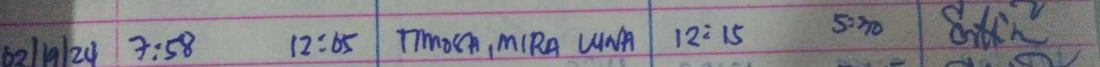 02/19/24 7:58 12:05 TIMOCA, MIRA LUNA 12:15 5:30